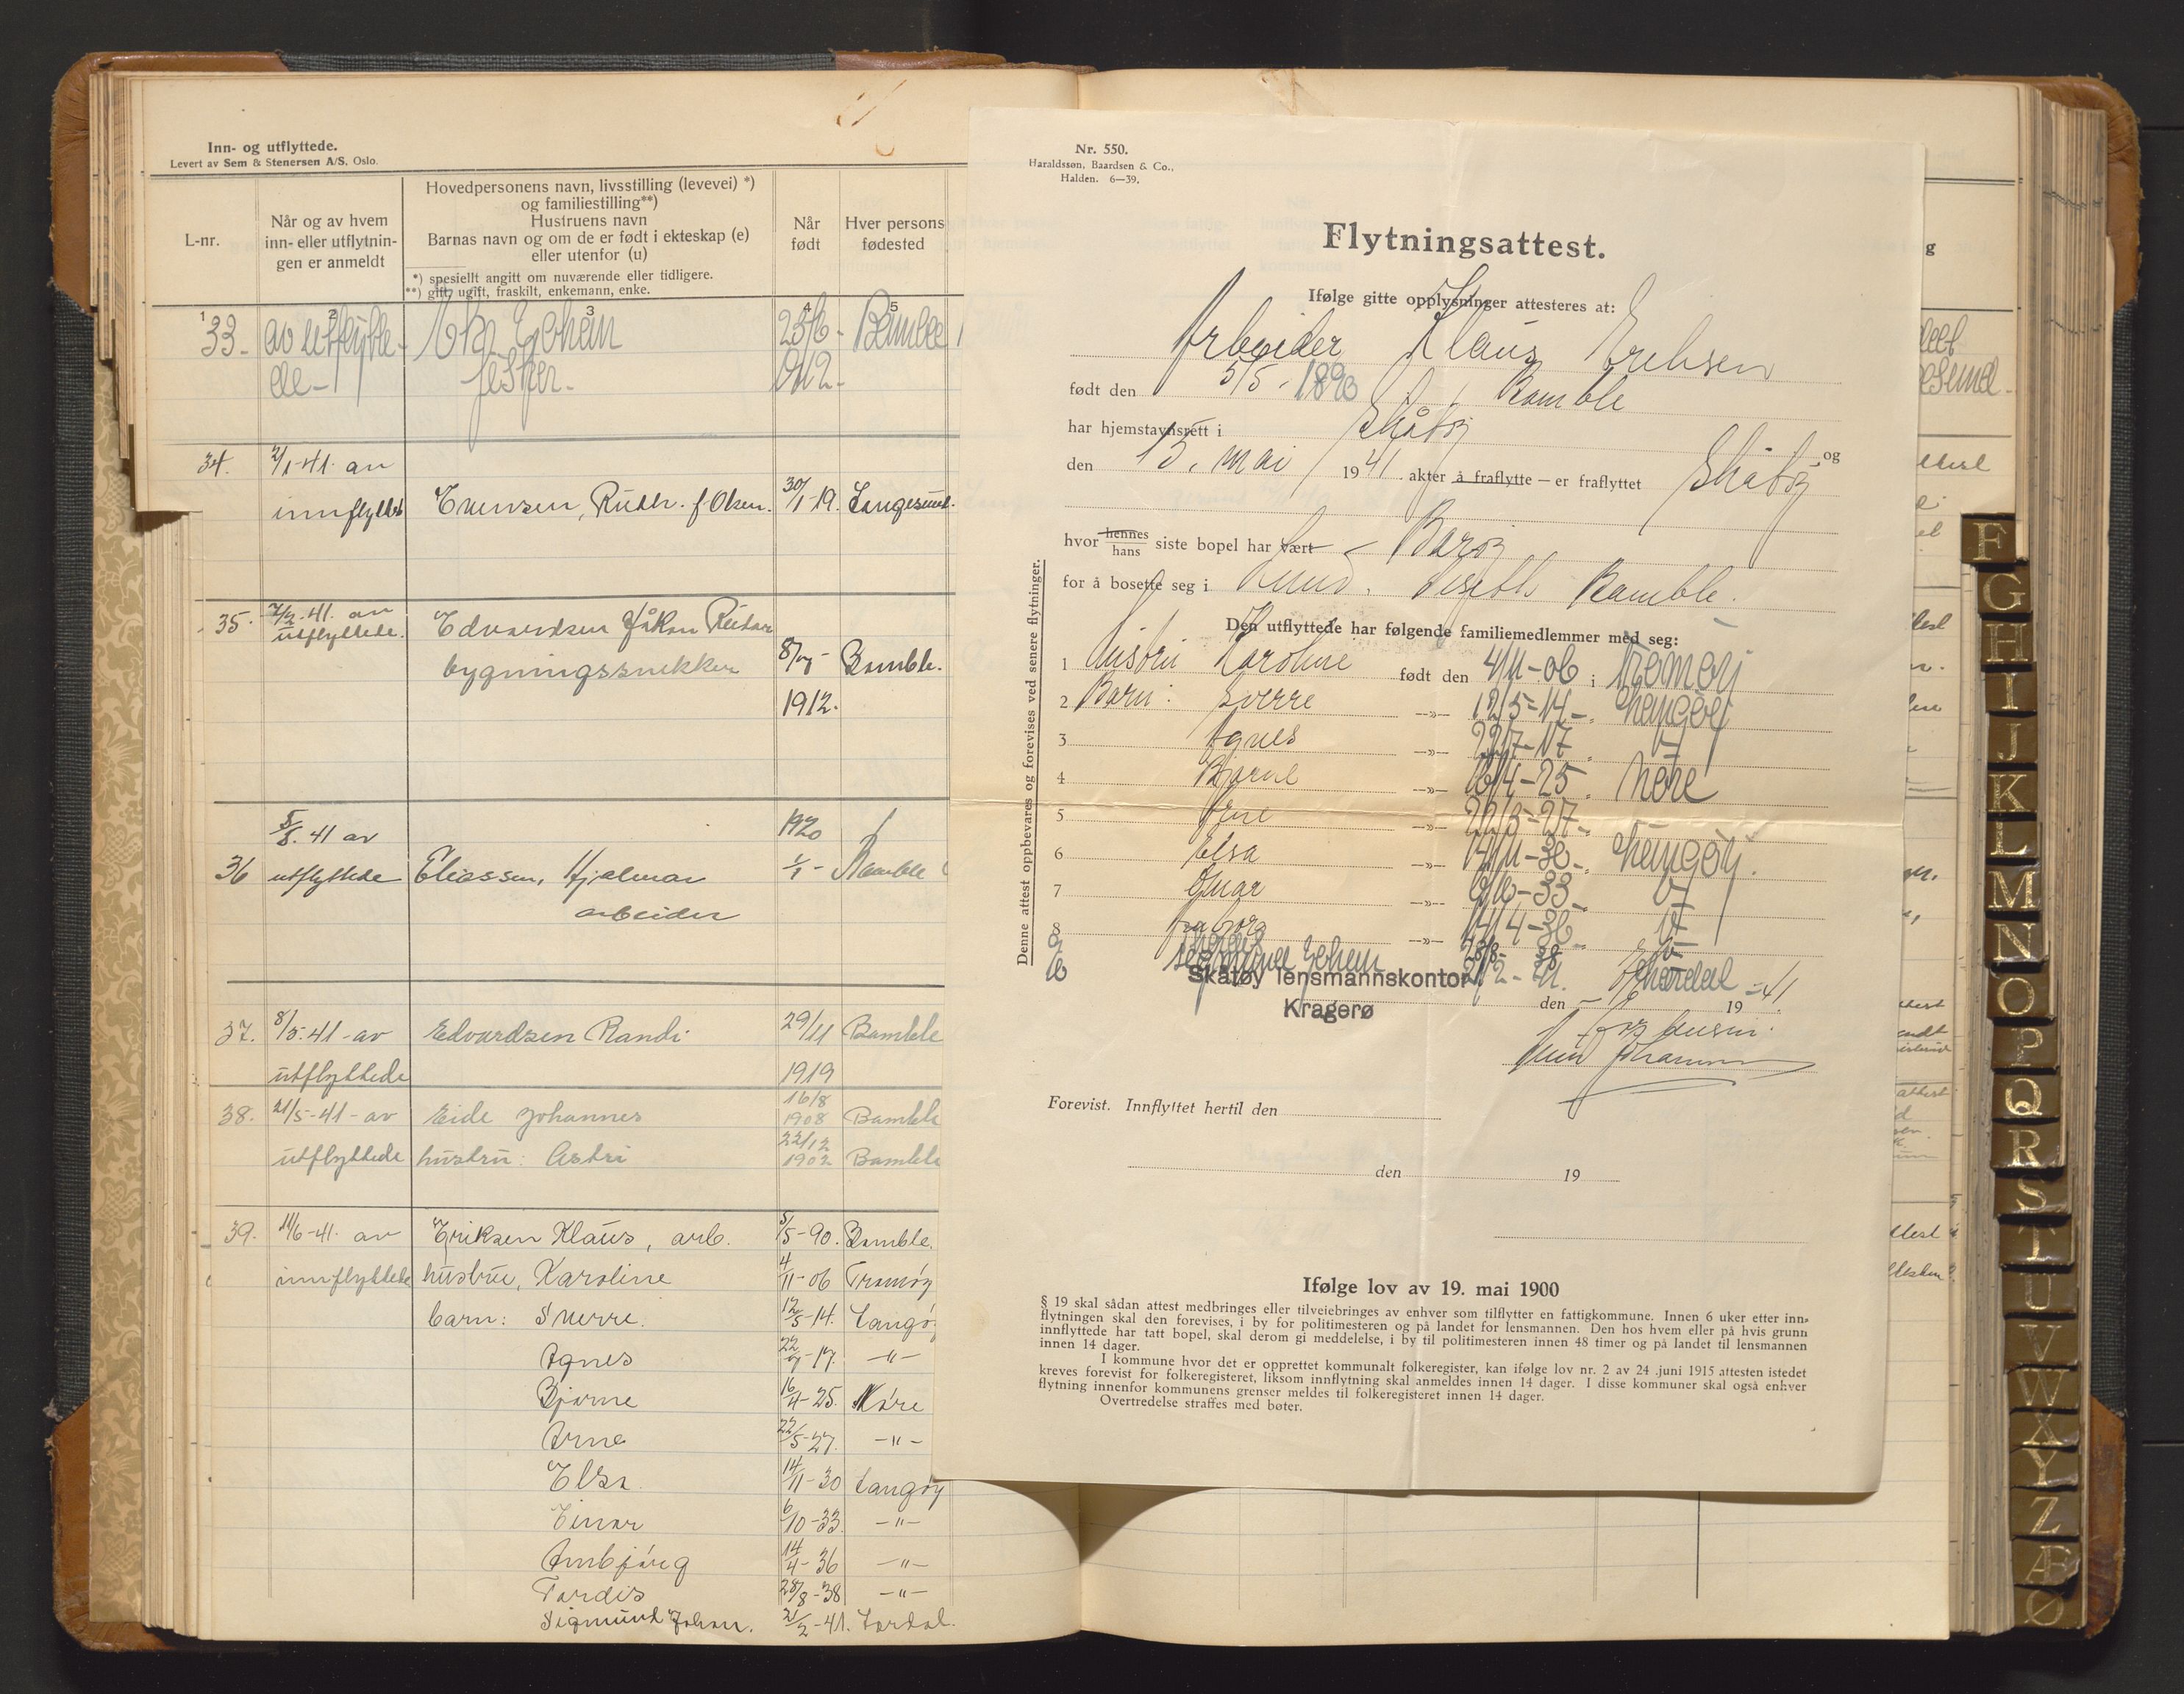 Inn- og utflyttede.
Levert av Sem & Stenersen A/S, Oslo.
L-nr.
Når og av hvem
inn- eller utflytnin-
gen er anmeldt
Hovedpersonens navn, livsstilling (levevei) *)
og familiestilling**)
Hustruens navn
Barnas navn og om de er født i ekteskap (e)
eller utenfor (u)
*) spesiellt angitt om nuværende eller tidligere.
**) gift, ugift, fraskilt, enkemann, enke.
Når
født
Hver persons
fødested
1 2 3 4 5
33. av utflytte- Johan Bamble
de- fisker. 1912-
34. 2/1-41. av
innflyttet Evensen, Ruth. f. Olsen. 30/1 19. Langesund.
35. 7/2.41. av
utflyttede. Edvardsen Håkon Reidar
bygningssnekker 8/7- Bamble.
1912.
5/5. 41 av 1920
36 utflyttede Eliassen, Hjalmar 1/1- Bamble
arbeider
37. 8/5.41-av Edvardsen Randi 29/11 Bamble
utflyttede 1919
38. 21/5-41-av Eide Johannes 16/8 1908 Bamble
utflyttede hustru: Astri 22/12 1902 Bamble
39. 11/6-41. av Eriksen Klaus, arb. 5/5-90. Bamble.
innflyttede hustru, Karoline 4/11-06 Tromøy
barn: Sverre. 12/5-14. Langøy
Agnes 22/7-17. -"-
Bjarne 16/4-25. Kåre
Arne 22/5-27. -"-
Elsa 14/11-30 Langøy
Einar 6/10-33. -"-
Ambjørg 14/4-36 -"-
Tordis 28/8-38 -"-
Sigmund Johan. 21/2-41. Sørdal.
Nr. 550.
Haraldssøn, Baardsen & Co.,
Halden. 6—39.
Flytningsattest.
Ifølge gitte opplysninger attesteres at:
Arbeider Klaus Eriksen
født den 5/5-1890 i Bamble
har hjemstavnsrett i Skåtøy og
den 15. mai 1941 akter å fraflytte — er fraflyttet Skåtøy
hvor hennes/hans siste bopel har vært - Barøy
for å bosette seg i Bamble.
Den utflyttede har følgende familiemedlemmer med seg:
1 Hustru Karoline født den 4/11-06 i Tromøy
2 Barn: Sverre —»— 12/5-14- Langøy
3 Agnes —»— 22/7-17
4 Bjarne —»— 16/4-25.
5 Arne —»—
6 Elsa —»— 14/11-30- Langøy.
7 Einar —»— 6/10-33
8 —»— 14/4-36
9 28/8-38
10 Sigmund Johan
Skåtøy lensmannskontor
Kragerø
den 19 41
Forevist. Innflyttet hertil den
den 19
Denne attest oppbevares og forevises ved senere flytninger.
Ifølge lov av 19. mai 1900
§ 19 skal sådan attest medbringes eller tilveiebringes av enhver som tilflytter en fattigkommune. Innen 6 uker etter inn-
flytningen skal den forevises, i by for politimesteren og på landet for lensmannen. Den hos hvem eller på hvis grunn
innflyttede har tatt bopel, skal derom gi meddelelse, i by til politimesteren innen 48 timer og på landet til lensmannen
innen 14 dager.
I kommune hvor det er opprettet kommunalt folkeregister, kan ifølge lov nr. 2 av 24 juni 1915 attesten istedet
kreves forevist for folkeregisteret, liksom innflytning skal anmeldes innen 14 dager. I disse kommuner skal også enhver
flytning innenfor kommunens grenser meldes til folkeregisteret innen 14 dager.
Overtredelse straffes med bøter.
F
G
H
I
J
K
L
M
N
O
P
Q
R
S
T
U
V
W
X
Y
Z
Æ
Ø